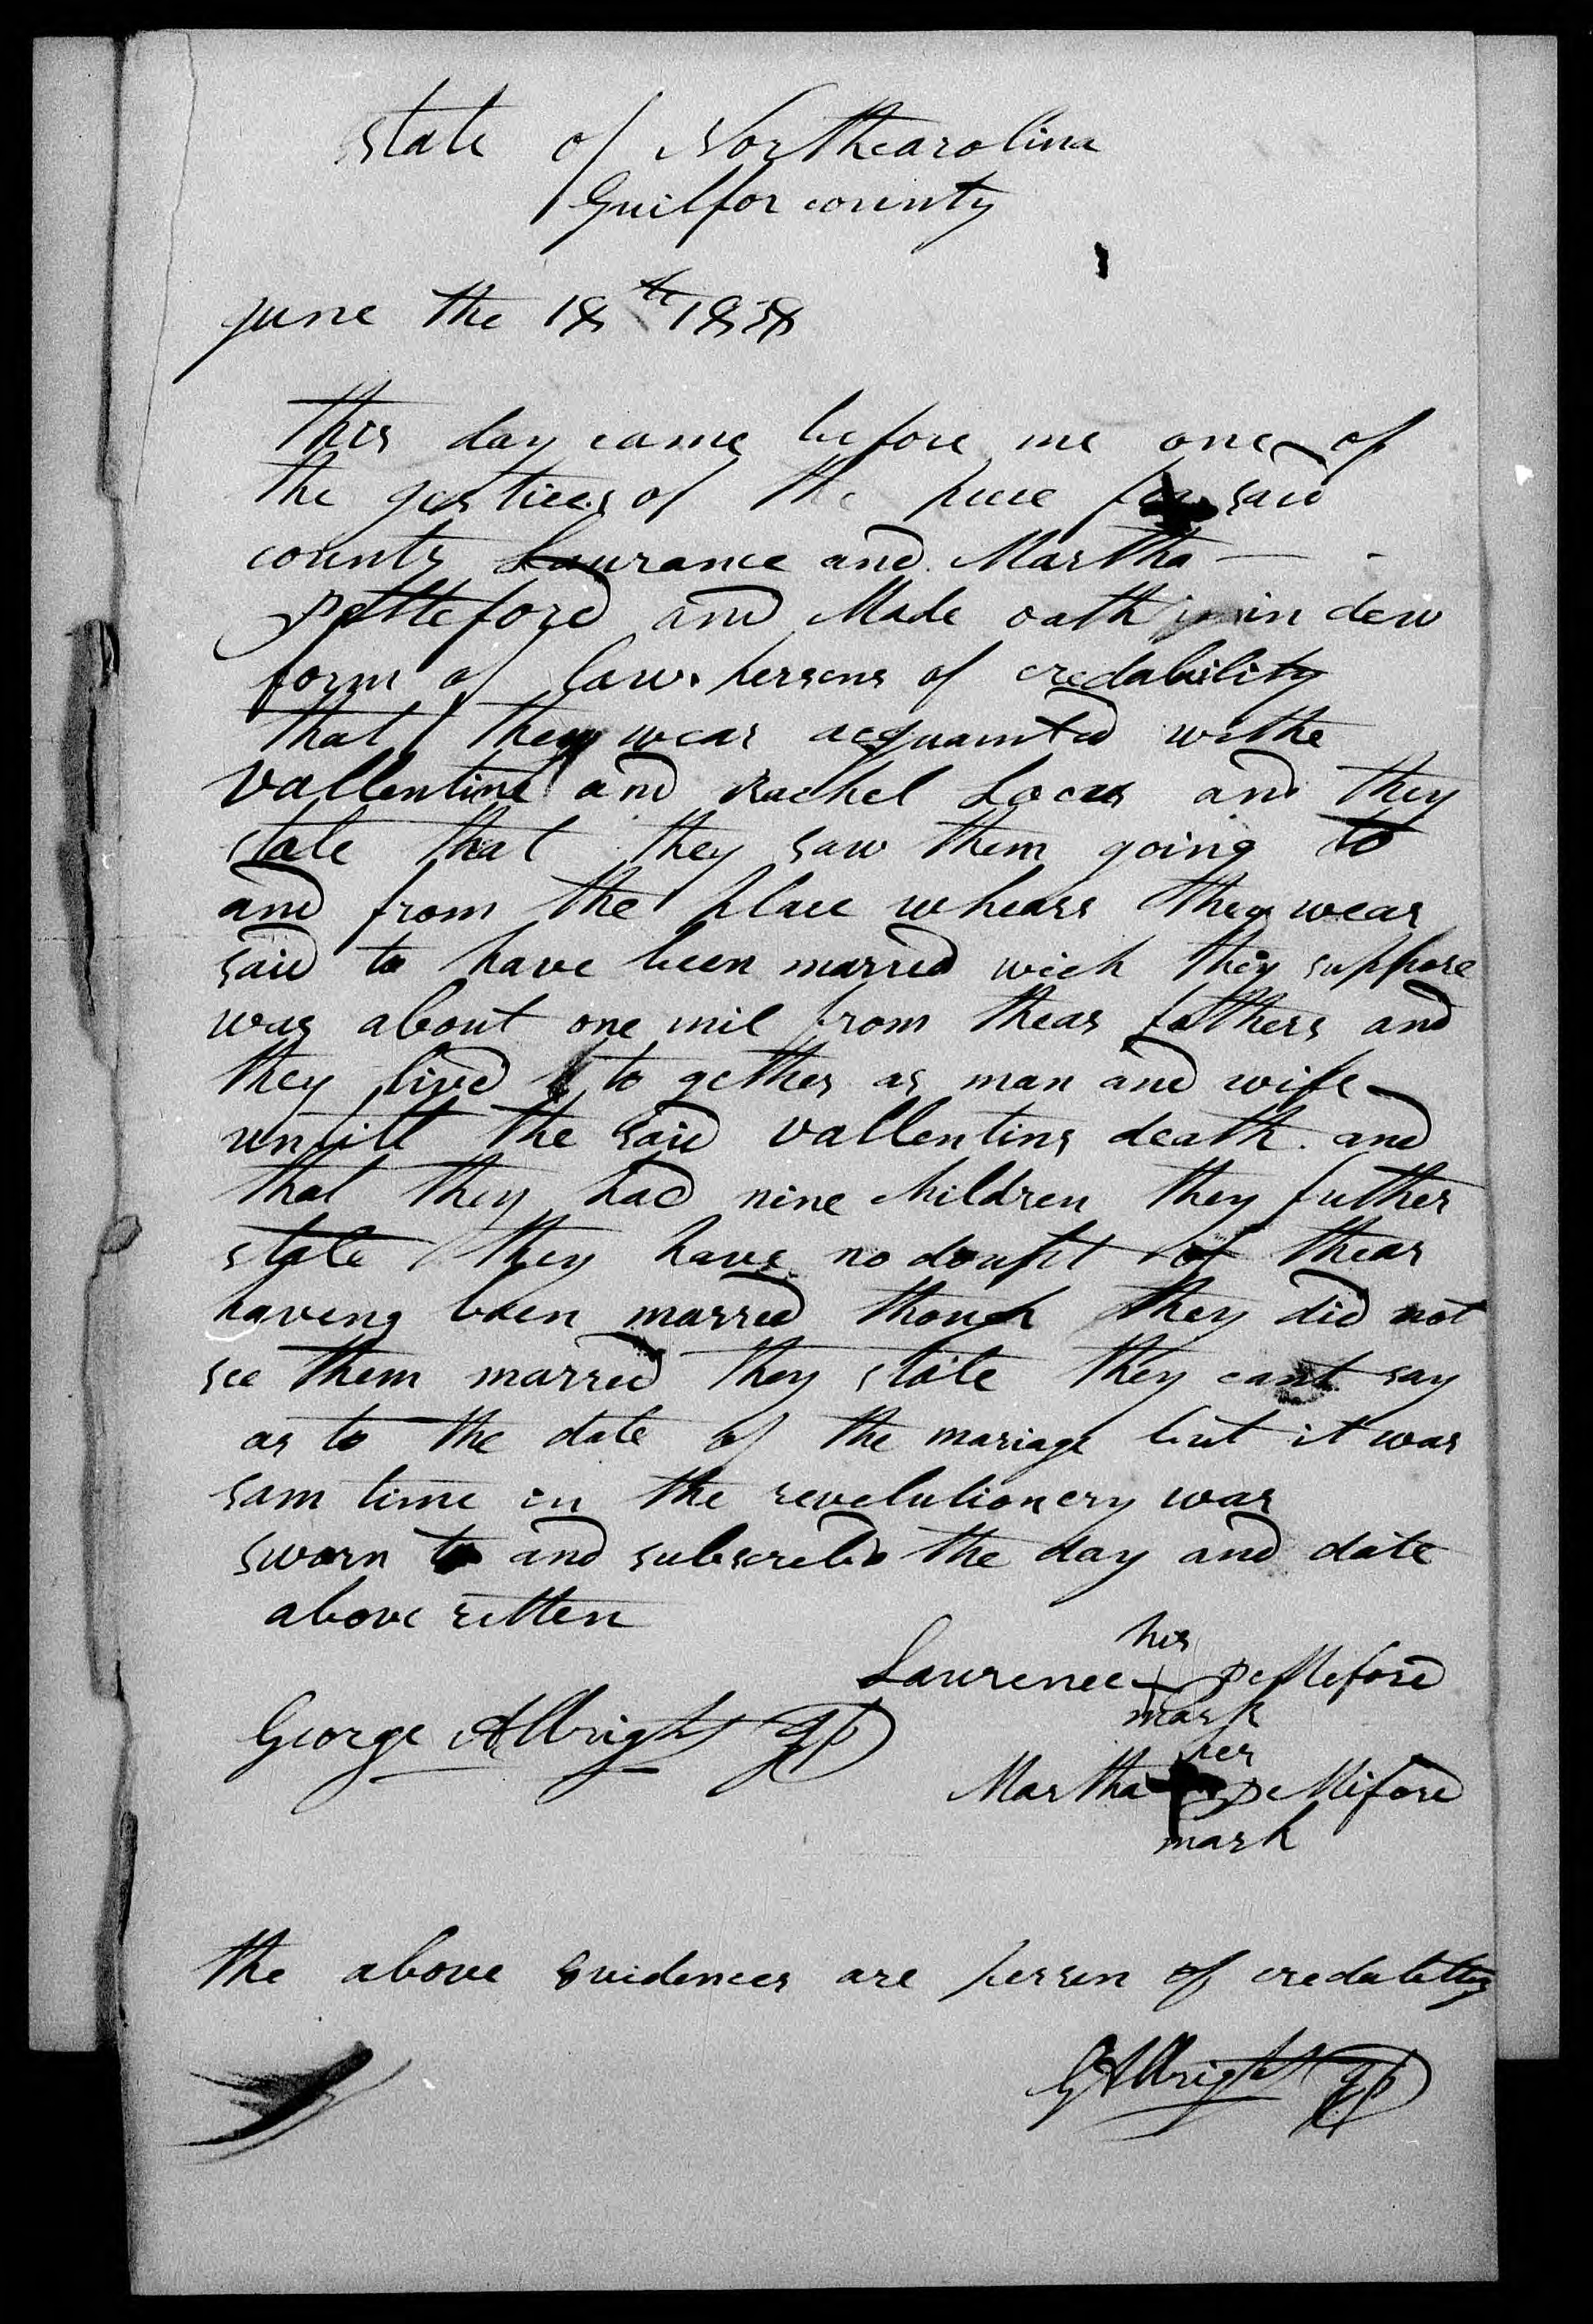 State of Northcarolina
Guilfor county
june the 18th 1838
This day came before me one of
the jestices of the peece for said
county Laurance and Martha
petteford and Made oath in dew
form of law persons of credability
that they wear acquainted withe
vallentine and Rachel Locus and they
state that they saw them going to
and from the place whears they wear
said to have been marred wich they suppose
was about one mil from thear fathers and
they lived to gether as man and wife
untill the said vallentins death and
that they had nine children they futher
state they have no doubt of thear
having been marred though they did not
see them marred they state they cant say
as to the date of the mariage but it was
sam time in the revelutionery war
sworn to and subscrebd the day and date
above ritten
his
Lawrence + petteford
mark
George Albright JP
her
Martha + pettiford
mark
the above evidences are person of credibility
G Albright JP